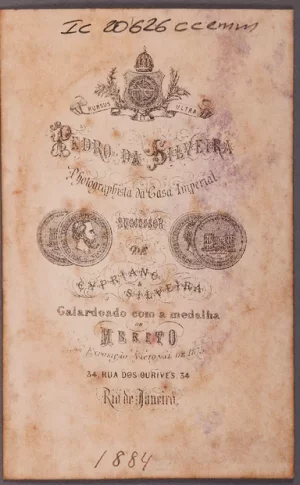 Ic 20626 ccemm
RURSUS ULTRA
PEDRO DA SILVEIRA
Photographista da Casa Imperial
SUCCESSOR
DE
CYPRIANO
&
SILVEIRA
Galardoado com a medalha
DE
MERITO
Exposição Nacional de
34, RUA DOS OURIVES, 34
Rio de Janeiro
1884